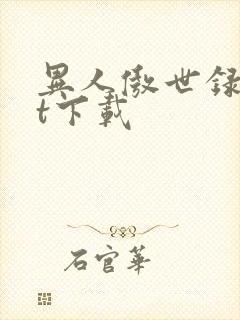 異人傲世録
t下載
石官華